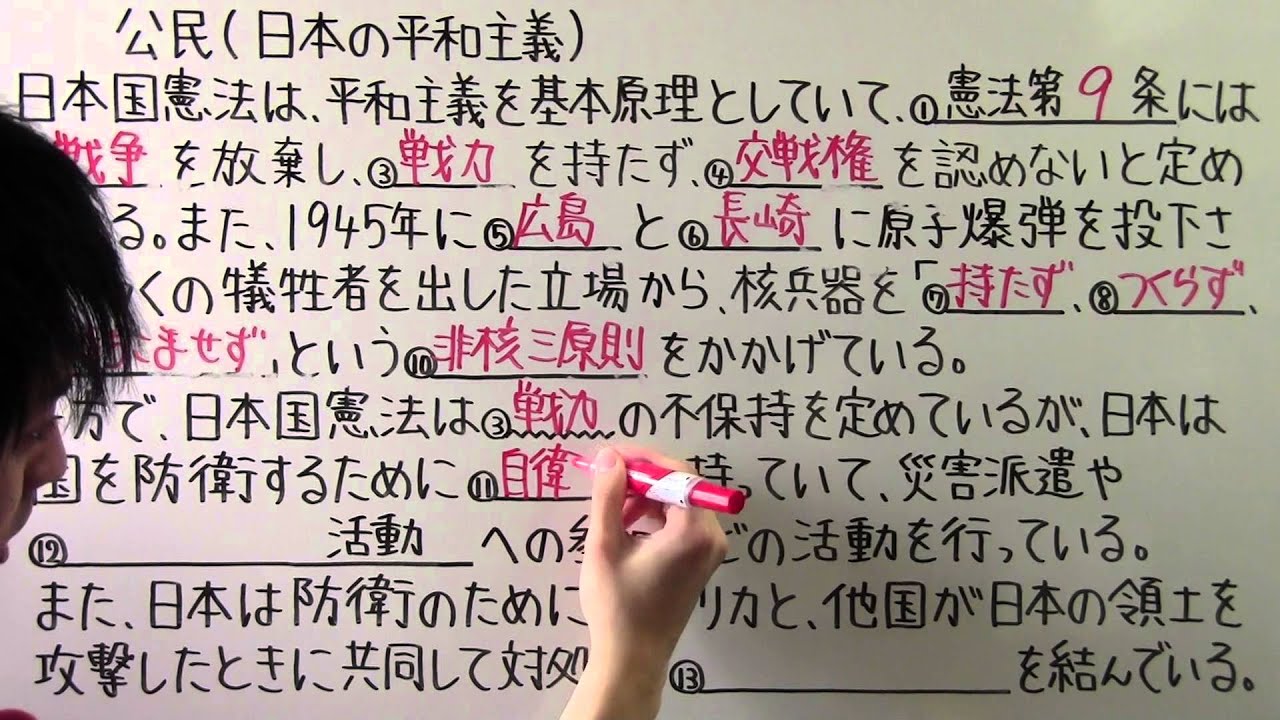 公民(日本の平和主義)
日本国憲法は、平和主義を基本原理としていて、①憲法第9条には
戦争を放棄し、③戦力を持たず、④交戦権を認めないと定め
る。また、1945年に⑤広島と⑥長崎に原子爆弾を投下さ
くの犠牲者を出した立場から、核兵器を「⑦持たず、⑧つくらず、
ませず」という⑩非核三原則をかかげている。
方で、日本国憲法は③戦力の不保持を定めているが、日本は
国を防衛するために⑪自衛 持っていて、災害派遣や
⑫ 活動 への参 どの活動を行っている。
また、日本は防衛のために リカと、他国が日本の領土を
攻撃したときに共同して対処 ⑬ を結んでいる。